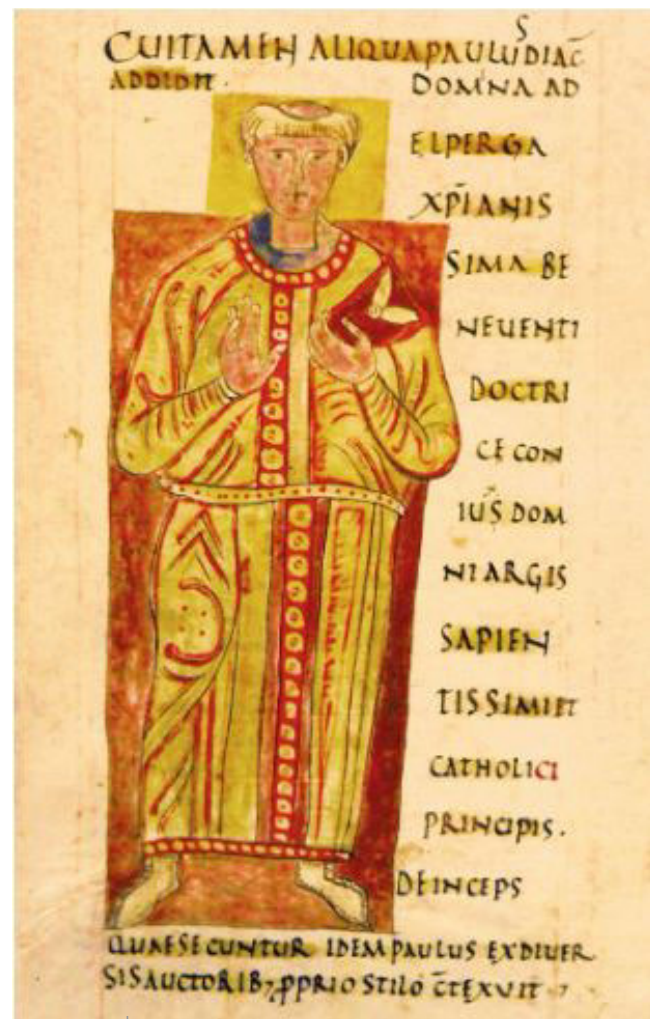 CUITAMEN ALIQUAPAULUSDIAC̄
ADDIDIT. DOMNA AD
ELPERGA
XP̄IANIS
SIMA BE
NEUENTI
DOCTRI
CE CON
IUS DOM
NI ARGIS
SAPIEN
TISSIMI ET
CATHOLICI
PRINCIPIS.
DEINCEPS
QUAESECUNTUR IDEM PAULUS EXDIVER
SIS AUCTORIB; ꝓPRIO STILO C̄TEXUIT